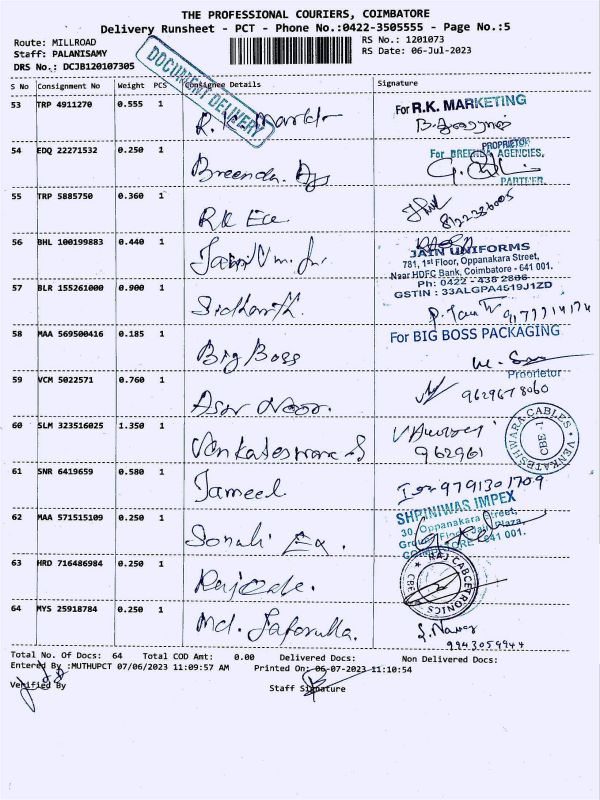 THE PROFESSIONAL COURIERS, COIMBATORE
Delivery Runsheet - PCT - Phone No.:0422-3505555 - Page No.:5
Route: MILLROAD
RS No.: 1201073
Staff: PALANISAMY
RS Date: 06-Jul-2023
DRS No.: DCJB120107305
DOCUMENT DELIVERY
S No Consignment No Weight PCS Consignee Details Signature
53 TRP 4911270 0.555 1
For R.K. MARKETING
54 EDQ 22271532 0.250 1 Breenda
PROPRIETOR
For BREENDA AGENCIES,
PARTNER
55 TRP 5885750 0.360 1 RK Ece
56 BHL 100199883 0.440 1
JAIN UNIFORMS
781, 1st Floor, Oppanakara Street,
Naar HDFC Bank, Coimbatore - 641 001.
Ph: 0422 - 438 2806
GSTIN : 33ALGPA4619J1ZD
57 BLR 155261000 0.900 1 Sidharth.
58 MAA 569500416 0.185 1 Big Boss
For BIG BOSS PACKAGING
Proprietor
59 VCM 5022571 0.760 1
9629678060
60 SLM 323516025 1.350 1 Venkateswara S
962961
VENKATESHWARA CABLES
CBE - 1
61 SNR 6419659 0.580 1 Jameel
9791301709
62 MAA 571515109 0.250 1 Sonali Ex.
SHRINIWAS IMPEX
30, Oppanakara Street,
Ground Floor, Jain Plaza,
COIMBATORE - 641 001.
63 HRD 716486984 0.250 1
RAJ CABCETRONICS
CBE
64 MYS 25918784 0.250 1 Md. Jaforulla.
S. Nawaz
9943059944
Total No. Of Docs: 64 Total COD Amt: 0.00 Delivered Docs: Non Delivered Docs:
Entered By :MUTHUPCT 07/06/2023 11:09:57 AM Printed On: 06-07-2023 11:10:54
Verified By
Staff Signature